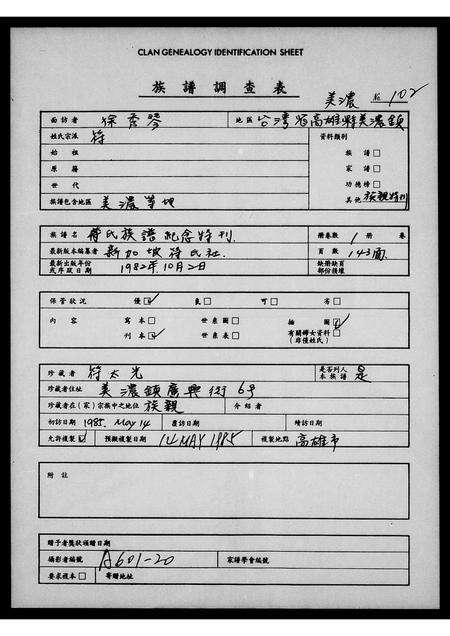 CLAN GENEALOGY IDENTIFICATION SHEET
族譜調查表
美濃 102
面訪者 徐秀琴 地區 台灣省高雄縣美濃鎮
姓氏宗派 符 資料類別
始祖 族譜□
原籍 家譜□
世代 功德榜□
族譜包含地區 美濃等地 其他 族親特刊
族譜名 符氏族譜紀念特刊. 冊卷數 1 冊 卷
最新版本編纂者 新加坡符氏社. 頁數 143面.
最新出版年份或序跋日期 1982年10月2日 缺冊缺頁部份損壞
保管狀況 優☑ 良□ 可□ 劣□
內容 寫本□ 世系圖□ 插圖☑
刊本☑ 世系表□ 有關婦女資料□(非僅姓氏)
珍藏者 符太光 是否列入本族譜 是
珍藏者住址 美濃鎮廣興街6号
珍藏者在(家)宗族中之地位 族親 介紹者
初訪日期 1985. May 14 覆訪日期 續訪日期
允許複製☑ 預擬複製日期 14 MAY 1985 複製地點 高雄市
附註
贈予者獎狀頒贈日期
攝影者編號 A601-20 家譜學會編號
要求複本□ 寄贈地址